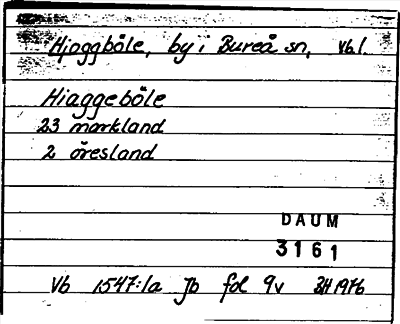 Hjoggböle, by i Bureå sn, vbl.
Hiaggeböle
23 markland
2 öresland
DAUM
3161
Vb 1547:1a Jb fol 9v BH 1976